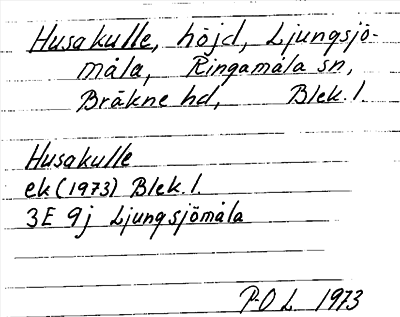 Husakulle, höjd, Ljungsjö-
måla, Ringamåla sn,
Bräkne hd, Blek. l.
Husakulle
ek (1973) Blek. l.
3E 9j Ljungsjömåla
P-O L 1973